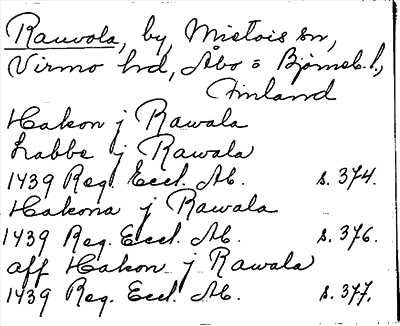 Rauvola, by, Mietois sn,
Virmo hd, Åbo o Björneb. l.,
Finland
Hakon j Rawala
Labbe j Rawala
1439 Reg. Eccl. Ab. s. 374.
Hakona j Rawala
1439 Reg. Eccl. Ab. s. 376.
aff Hakon j Rawala
1439 Reg. Eccl. Ab. s. 377.